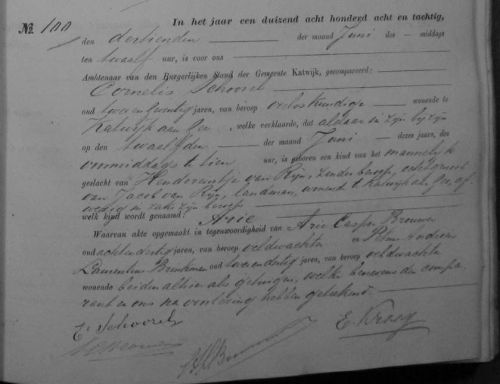 No. 100
In het jaar een duizend acht honderd acht en tachtig,
den dertienden der maand Juni des middags
ten twaalf ure, is voor ons
Ambtenaar van den Burgerlijken Stand der Gemeente Katwijk, gecompareerd:
Cornelis Schoorel
oud twee en twintig jaren, van beroep verloskundige wonende te
Katwijk aan Zee welke verklaarde, dat aldaar in zijn bijzijn
op den twaalfden der maand Juni dezes jaars, des
voormiddags te tien ure, is geboren een kind van het mannelijk
geslacht van Hendrientje van Rijn, zonder beroep, echtgenoot
van Jacob van Rijn, landman, wonend te Katwijk aan Zee, af
wezig in zake zijn beroep
welk kind wordt genaamd: Arie
Waarvan akte opgemaakt in tegenwoordigheid van Arie Casper Brouwer
oud achtendertig jaren, van beroep veldwachter en
Laurentius Brinkman oud twee en dertig jaren, van beroep veldwachter
wonende beiden alhier als getuigen, welke benevens de compa
rant en ons na voorlezing hebben geteekend.
C. Schoorel
E. Kroog